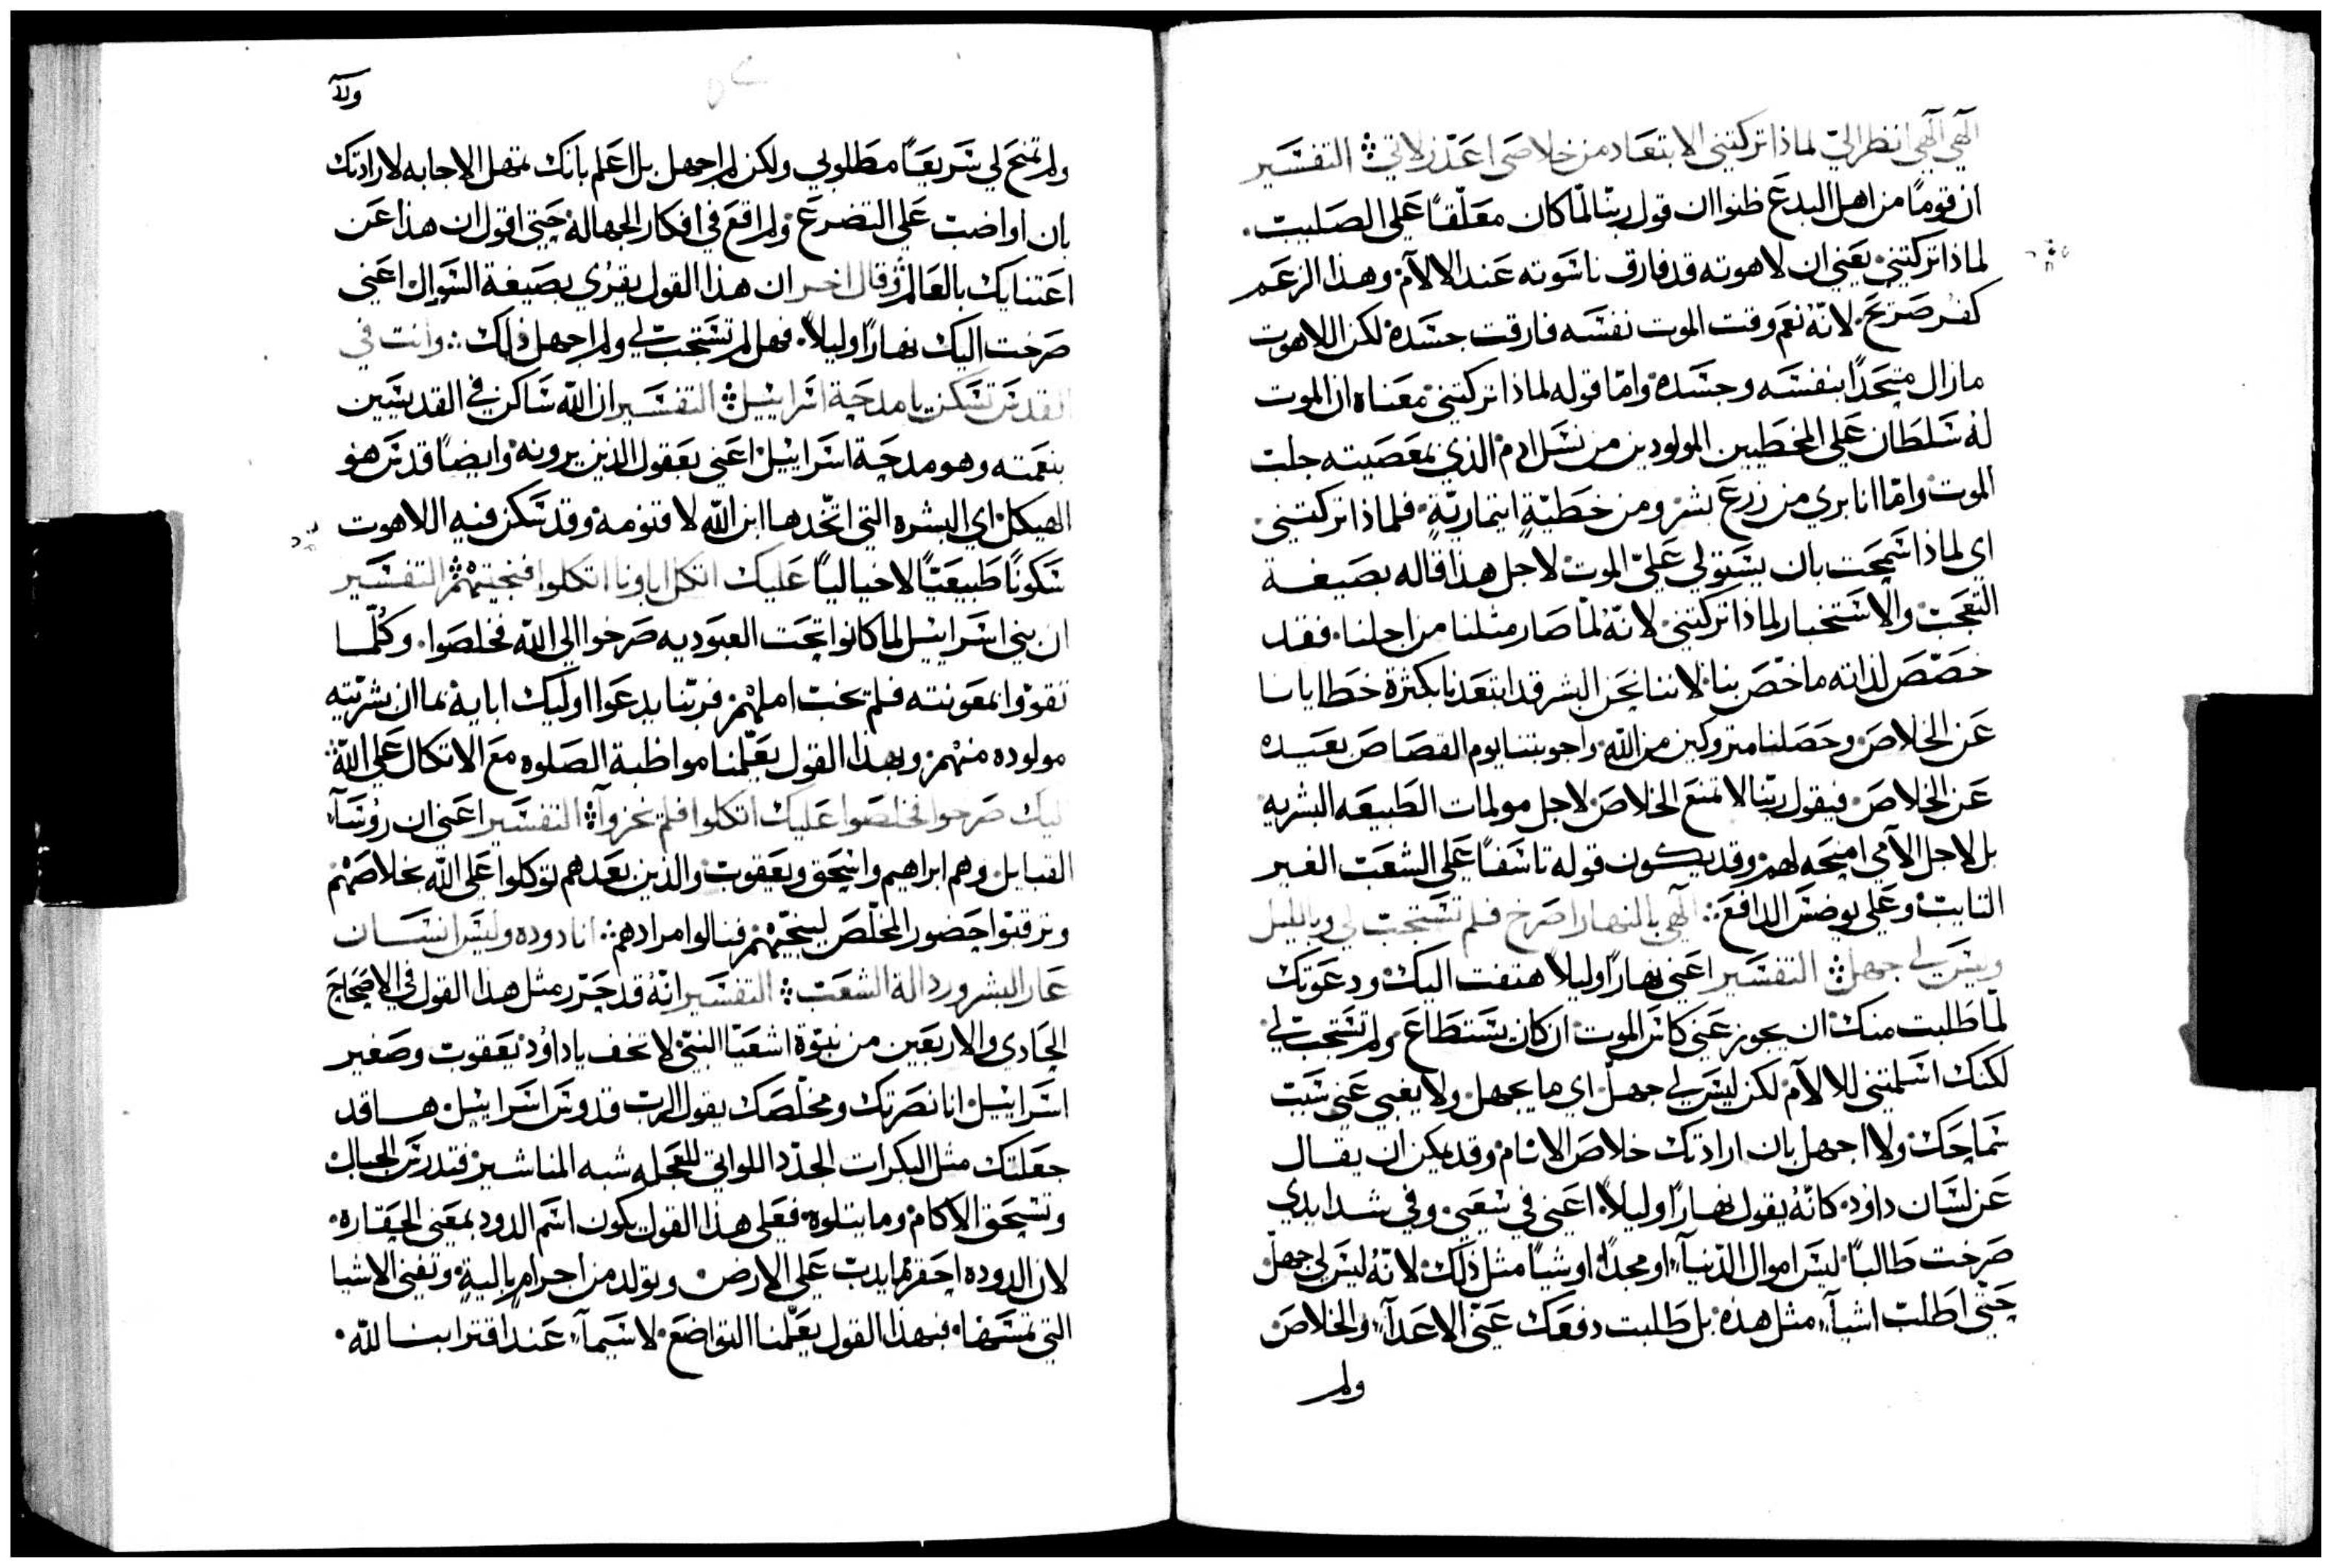 الٓهي الٓهي انظر اليّ لماذا تركتني الابتعاد من خلاصي اعَدّ زلاتي ۞ التفسَير
ان قومًا من اهل البدعَ ظنوا ان قول ربّنا لمّا كان معَلّقًا عَلي الصَليب.
لماذا تركتني. يعَني ان لاهوته قد فارق ناسَوته عَند الالآم. وهذا الزعَم
كفر صَريحَ. لانّهُ نعَم وقت الموت نفسَه فارقت جسَده. لكن اللاهوت
مازال متحَدًا بنفسَه وجسَده. وامّا قوله لماذا تركتني. معَناه ان الموت
لهُ سَلطَان عَلي المخطَيين المولودين من نسَل ادم الذي بمعَصَيته جلب
الموت. وامّا انا بري من زرعَ بشر. ومن خطَيّةٍ ايتماريّةٍ. فلماذا تركتني.
اي لماذا سَمحَت بان يسَتولي عَليّ الموت. لاجل هذا قاله بصَيغة
التعَجّب والاسَتخبار لماذا تركتني. لانّهُ لمّا صَار مثلنا من اجلنا. فقد
خصّصَ لذاته ما خصّ بنا. لاننا نحَن البشر قد ابتعَدنا بكثرة خطَايانا
عَن الخلاصَ. وحَصَلنا متروكين من اللّه. واجوبتنا يوم القصَاصَ بعَيده
عَن الخلاصَ. فيقول ربّنا لا تمنعَ الخلاصَ لاجل مولمات الطَبيعَه البشريه
بل لاجل الآمي امنحَه لهم. وقد يكون قوله تاسَفًا عَلي الشعَب الغير
التايب. وعَلي يوضسَ الدافعَ: الٓهي بالنهار اصَرخ فلم تسَتجب لي وبالليل
وليسَ لي جهل ۞ التفسَير اعَني نهارًا وليلاً هتفت اليك. ودعَوتك
لمّا طَلبت منك. ان يجوز عَني كاسَ الموت. ان كان يسَتطَاعَ. ولم تسَتجب لي.
لكنك اسَلمتني للالآم. لكن ليسَ لي جهل. اي ما يجهل. ولا يغبي عَني سَبب
سَماحَك. ولا اجهل بان ارادتك خلاصَ الانام. وقد يمكن ان يقال
عَن لسَان داوُد. كانّهُ يقول نهارًا وليلاً. اعَني في سَعَيي. وفي شدايدي
صَرخت طَالبًا. ليسَ اموال الدّنيآء. او مجدًا. او شيًا مثل ذلك. لانّهُ ليسَ لي جهل.
حَتّي اطَلب اشيآء مثل هذه. بل طَلبت دفعَك عَنّي الاعَدآء. والخلاصَ
ولم
ولآ
ولم تمنحَ لي سَريعَاً مطَلوبي. ولكن لم اجهل بل اعَلم بانك تمهل الاجابه لارادتك
بان اواضب عَلي التضرعَ. ولم اقعَ في افكار الجهاله. حَتي اقول ان هذا عَن
اعَتنايك بالعَالم. وقال اخر ان هذا القول يقرَي بصَيغة السَوال اعَني
صَرخت اليك نهارًا وليلاً. فهل لم تسَتجب لي ولم اجهل ذلك: وانت في
القدسَ تسَكن يا مدحَة اسَراييل ۞ التفسَير ان اللّه سَاكن في القديسَين
بنعَمته وهو مدحَة اسَراييل. اعَني بعَقول الذين يرونه. وايضًا قدسَ هو
الهيكل اي البشره التي اتّخدها ابن اللّه لاقنومه. وقد سَكن فيه اللاهوت
سَكونًا طَبيعَيًّا لا خياليًا عَليك اتكل اباونا اتكلوا فنجيتهم ۞ التفسَير
ان بني اسَراييل لما كانوا تحَت العبَوديه صَرخوا الي اللّه فخلصَوا. وكُلّما
تقووا بمعَونته فلم يخب املهم. فربّنا يدعَوا اوليك ابايه. بما ان بشريّته
مولوده منهم. وبهذا القول يعَلّمنا مواظبة الصَلوه معَ الاتكال عَلي اللّه:
اليك صَرخوا فخلصَوا عَليك اتكلوا فلم يخزوآ ۞ التفسَير اعَني ان روسَآء
القبايل. وهم ابراهيم واسَحَق ويعَقوب والذين بعَدهم توكلوا عَلي اللّه بخلاصَهم
وترقبّوا حَضور المخلّصَ لينجّيهم. فنالوا مرادهم: انا دوده وليسَ انسَان
عَار البشر ورداله الشعَب ۞ التفسَير انّهُ قد حَرّر مثل هذا القول في الاصَحَاحَ
الحَادي والاربعَين من نبوّة اشعَيَا النبيّ. لا تخف يا داوُد يَعَقوب وصَغير
اسَراييل انا نصَرتك ومخلّصَك يقول الرب قدوسَ اسَراييل. ها قد
جعَلتك مثل البكرات الجدّد اللواتي للعَجله شبه المناشير. فتدرسَ الجبال
وتسَحَق الاكام. وما يتلوه. فعَلي هذا القول يكون اسَم الدود بمعَني الحَقاره.
لان الدوده احَقر ما يدب عَلي الارض. ويولد من اجرامٍ باليةٍ. وتفني الاشيا
التي تمسَها. فبهذا القول يعَلّمنا التواضعَ. لاسَيمآ. عَند اقترابنا للّه.